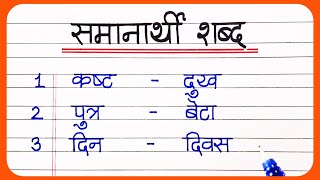 समानार्थी शब्द
1 कष्ट - दुख
2 पुत्र - बेटा
3 दिन - दिवस